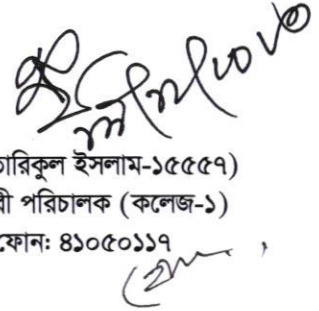 তারিকুল ইসলাম-১৫৫৫৭)
রী পরিচালক (কলেজ-১)
ফোনঃ ৪১০৫০১১৭